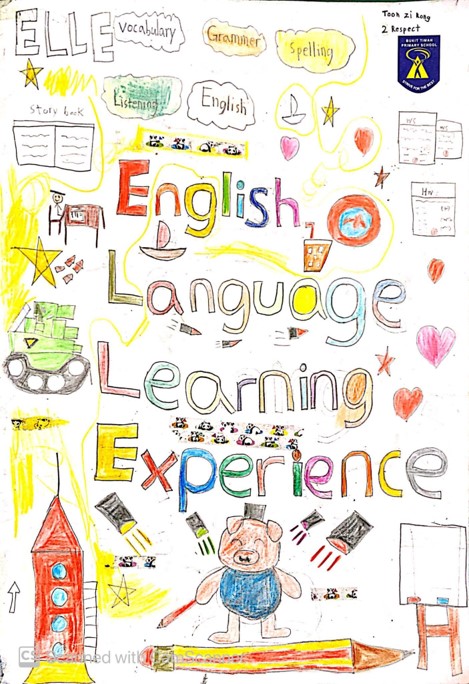 ELLE
vocabulary
Grammer
Spelling
Toon zi kong
2 Respect
BUKIT TIMAH
PRIMARY SCHOOL
STRIVE FOR THE BEST
Listening
English
Story book
HW
English
Language
Learning
Experience
CS